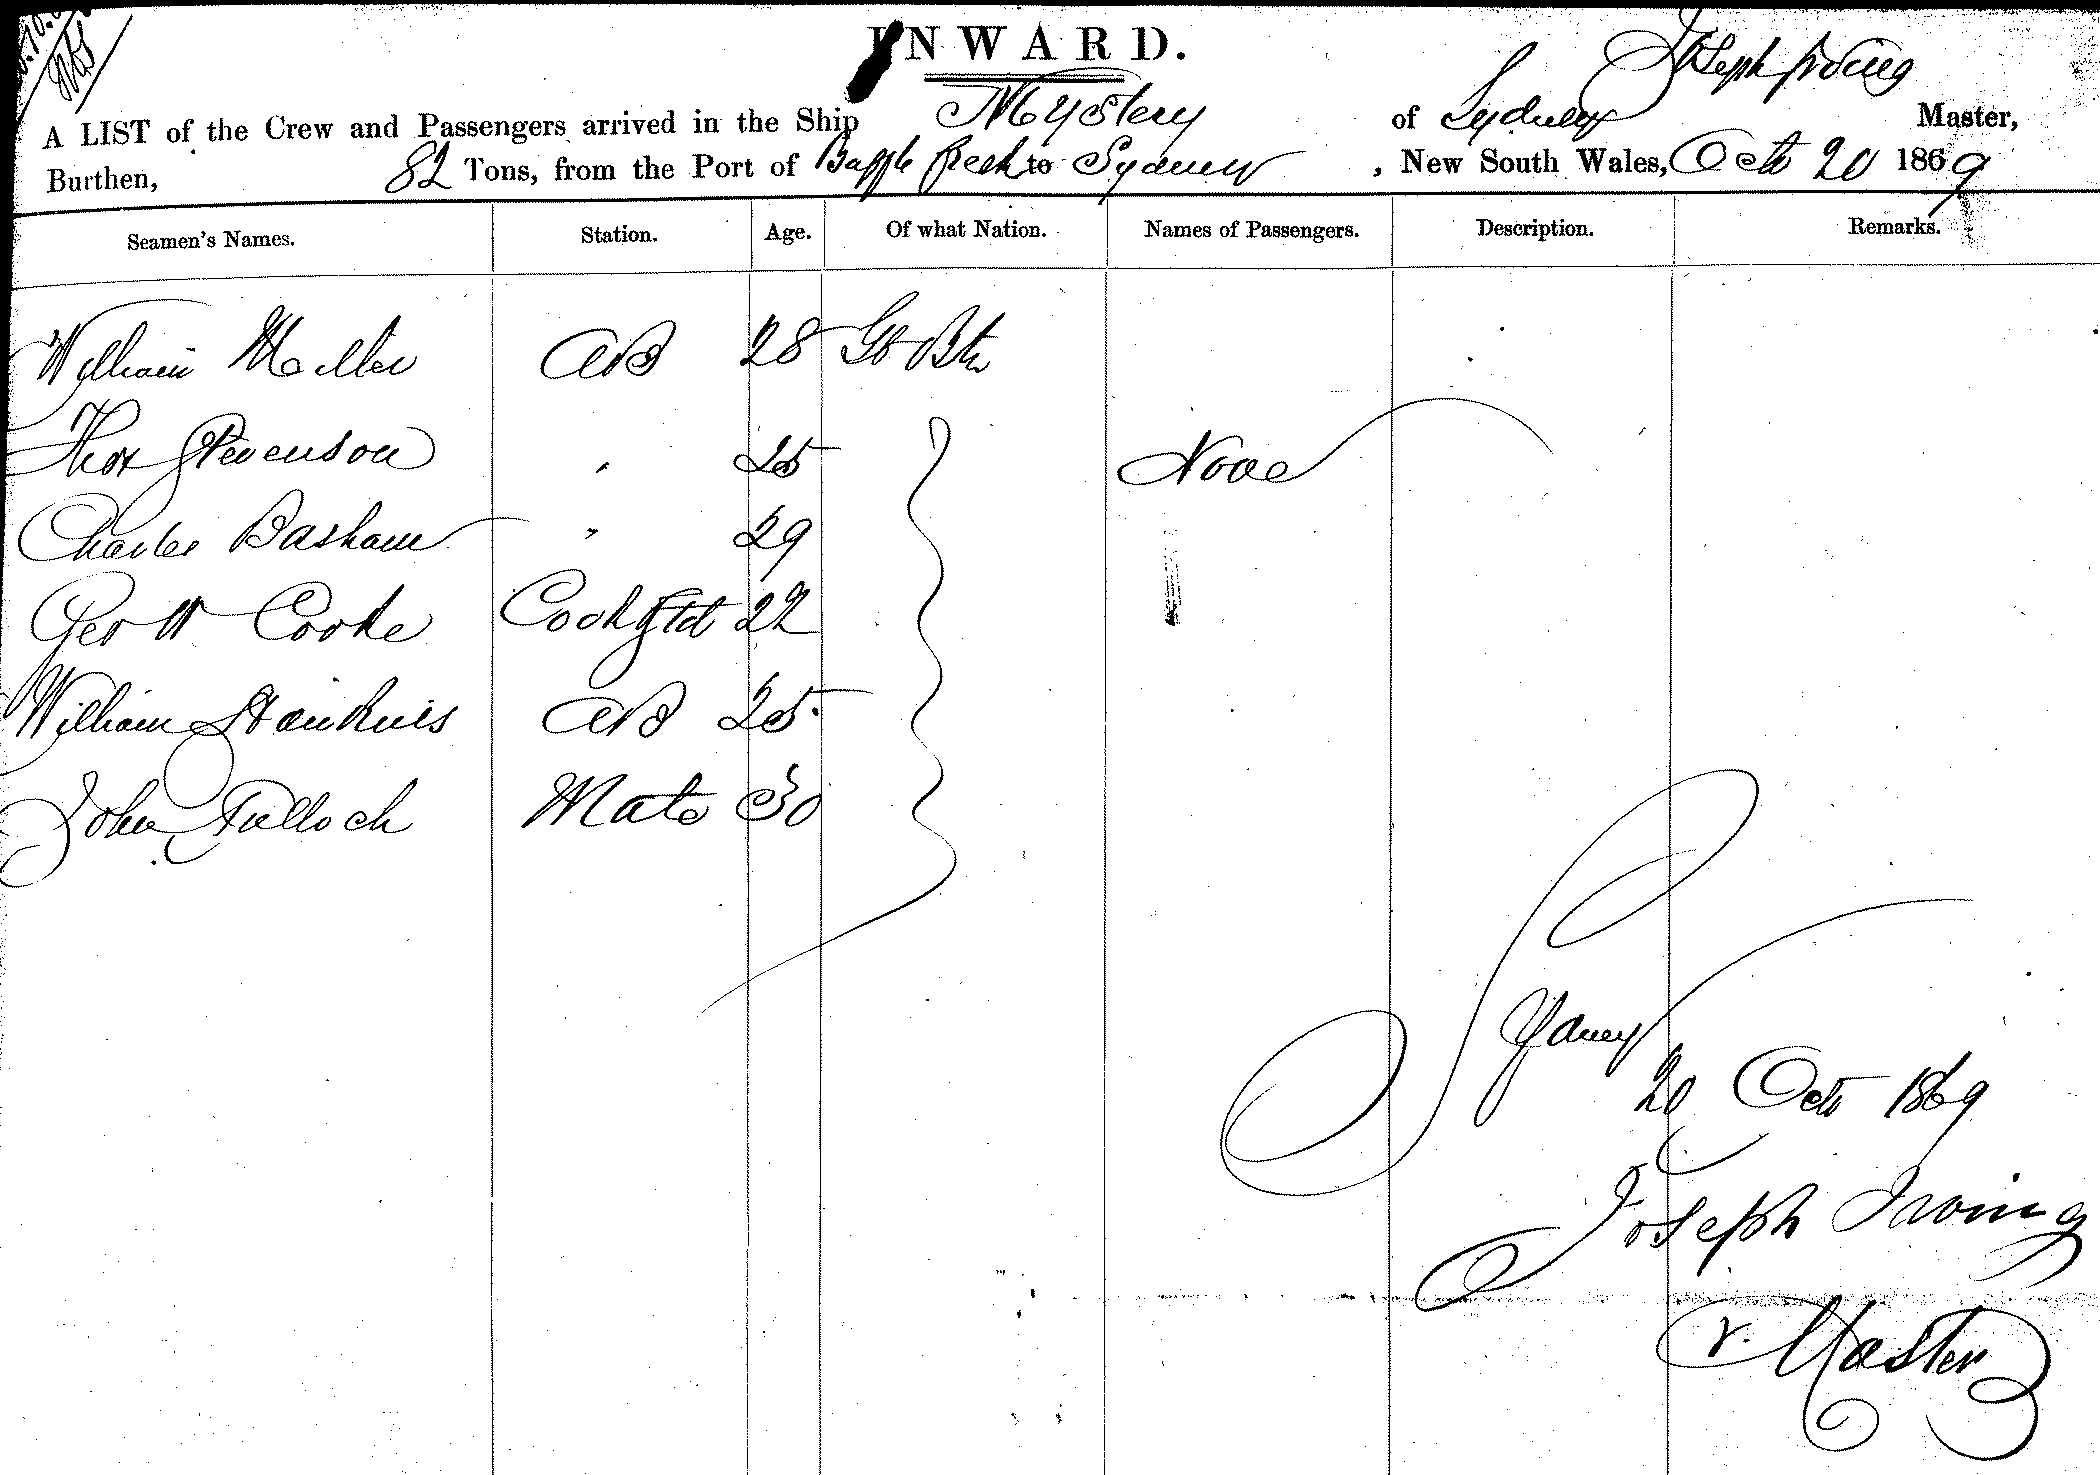 INWARD.
Joseph Irving
A LIST of the Crew and Passengers arrived in the Ship Mystery of Sydney Master,
Burthen, 82 Tons, from the Port of Baffle Creek to Sydney , New South Wales, Oct 20 1869
Seamen's Names. Station. Age. Of what Nation. Names of Passengers. Description. Remarks.
William Miller AB 28 Gt Btn
Thos Stevenson " 25 None
Charles Basham " 29
Geo W Cooke Cook & Std 22
William AB 25
John Tulloch Mate 30
Sydney
20 Oct 1869
Joseph Irving
Master